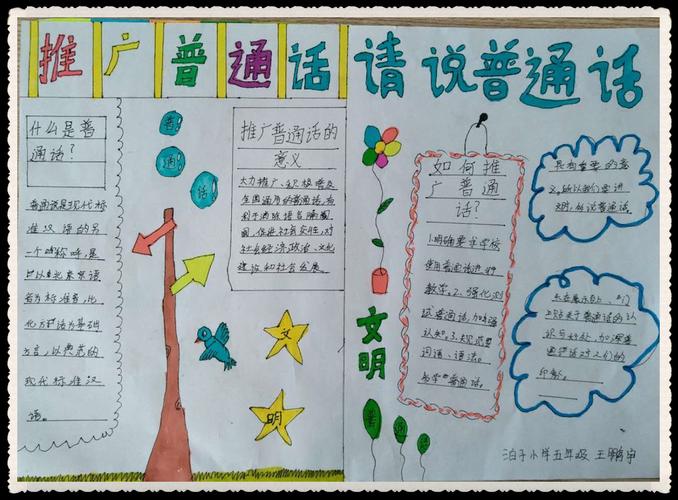 推广普通话请说普通话
什么是普
通话?
普通话是现代标
准汉语的另
一个
称呼,是
以北京语
音为标准音,北
方话为基础
方言,以典范的
现代标准汉
语。
普
通
话
推广普通话的
意义
大力推广、积极普及
全国通用的普通话,有
利于消除语言隔阂
社会交往,对
社会经济、政治、文化
建设和社会发展。
文
明
文明
如何推
广普通
话?
1.明确要求学校
使用普通话进行
教学。2.强化测
试普通话,加强
认知。3.规范
词语、语法。
普通话。
普
通
话
具有重要的意
义,所以我们要讲
文明,
说普通话。
普通话的认
识与好处,加深
普通话对人们的
印象。
泊子小学五年级 王鹏宇